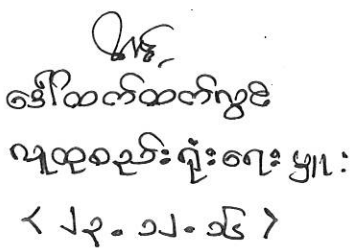 ဒေါ်ထက်ထက်လွင်
လူထုစည်းရုံးရေးမှူး
( ၂၃.၁၂.၁၆ )